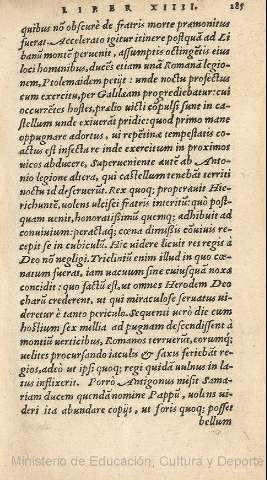 LIBER XIIII. 285
quibus nõ obscurè de fratris morte præmonitus
fuerat. Accelerato igitur itinere postquã ad Li
banũ montẽ peruenit, assumptis octingẽtis eius
loci hominibus, ducẽs etiam unã Romanã legio-
nem, Ptolemaidem petijt: unde noctu profectus
cum exercitu, per Galilæam progrediebatur: cui
occurrẽtes hostes, prælio uicti cõpulsi sunt in ca-
stellum unde exiuerãt pridie: quod primo mane
oppugnare adortus, ui repẽtinæ tempestatis co-
actus est infecta re inde exercitum in proximos
uicos abducere. Superueniente autẽ ab Anto-
nio legione altera, qui castellum tenebãt territi
noctu id deseruerũt. Rex quoq; properauit Hie-
richuntẽ, uolens ulcisci fratris interitũ: quò post-
quam uenit, honoratissimũ quemq; adhibuit ad
conuiuium: peractaq; cœna dimissis cõuiuis re-
cepit se in cubiculũ. Hic uidere licuit res regis à
Deo nõ negligi. Triclinij enim illud in quo cœ-
natum fuerat, iam uacuum sine cuiusquã noxa
concidit: quo factũ est, ut omnes Herodem Deo
charũ crederent, ut qui miraculose seruatus ui-
deretur è tanto periculo. Sequenti uerò die cum
hostium sex millia ad pugnam descendissent à
montiũ uerticibus, Romanos terruerũt, eorumq́;
uelites procursando iaculis & saxis feriebãt re-
gios, adeò ut ipsi quoq; regi quidã uulnus in la-
tus inflixerit. Porrò Antigonus misit Sama-
riam ducem quendã nomine Pappũ, uolens ui-
deri ita abundare copijs, ut foris quoq; posset
bellum
Ministerio de Educación, Cultura y Deporte